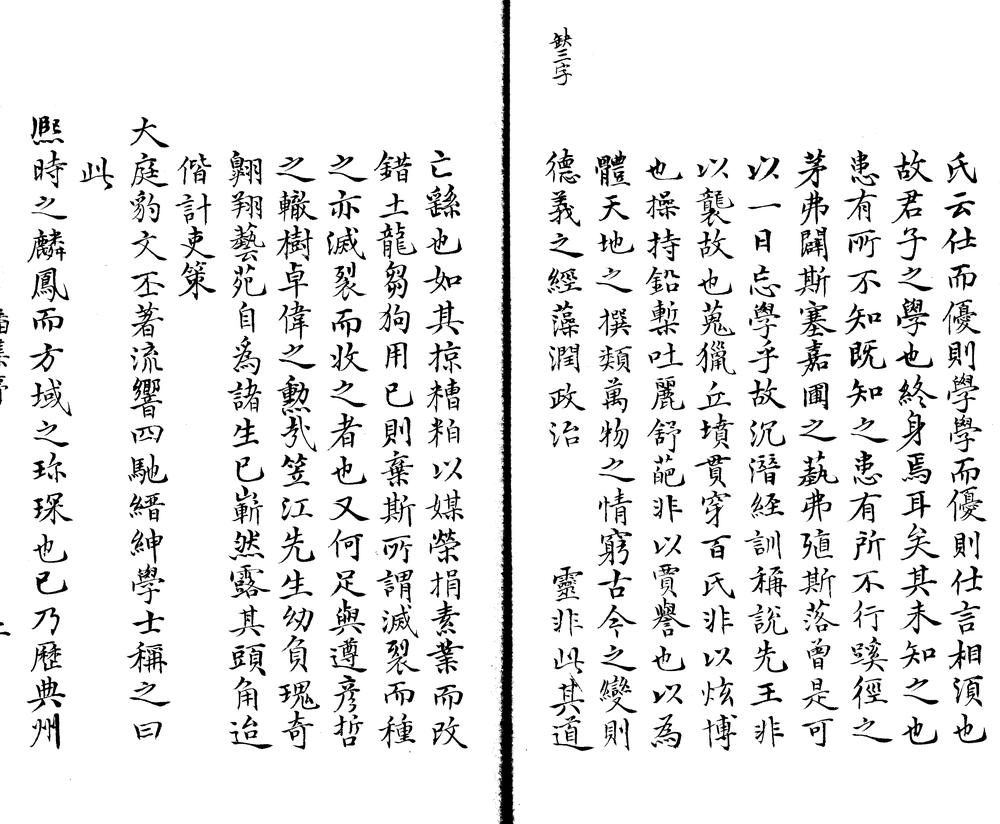 氏云仕而優則學學而優則仕言相須也
故君子之學也終身焉耳矣其未知之也
患有所不知既知之患有所不行蹊徑之
茅弗闢斯塞嘉圃之蓺弗殖斯落曾是可
以一日忘學乎故沉潛經訓稱說先王非
以襲故也蒐獵丘墳貫穿百氏非以炫博
也操持鉛槧吐麗舒葩非以賈譽也以為
體天地之撰類萬物之情窮古今之變則
德義之經藻潤政治 靈非此其道
缺三字
亡繇也如其掠糟粕以媒榮捐素業而改
錯土龍芻狗用已則棄斯所謂滅裂而種
之亦滅裂而收之者也又何足與遵彥哲
之轍樹卓偉之勲哉笠江先生幼負瑰奇
翱翔藝苑自為諸生已嶄然露其頭角迨
偕計吏策
大庭豹文丕著流響四馳縉紳學士稱之曰
此
熙時之麟鳳而方域之珎琛也已乃歷典州